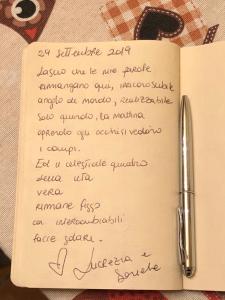 29 Settembre 2019
Lascio che le mie parole
rimangano qui, in
angolo di mondo, realizzabile
solo quando, la mattina
aprendo gli occhi si vedono
i campi.
Ed il celestiale quadro
della vita
vera
rimane fisso
con intercambiabili
facce solari.
Lucrezia e